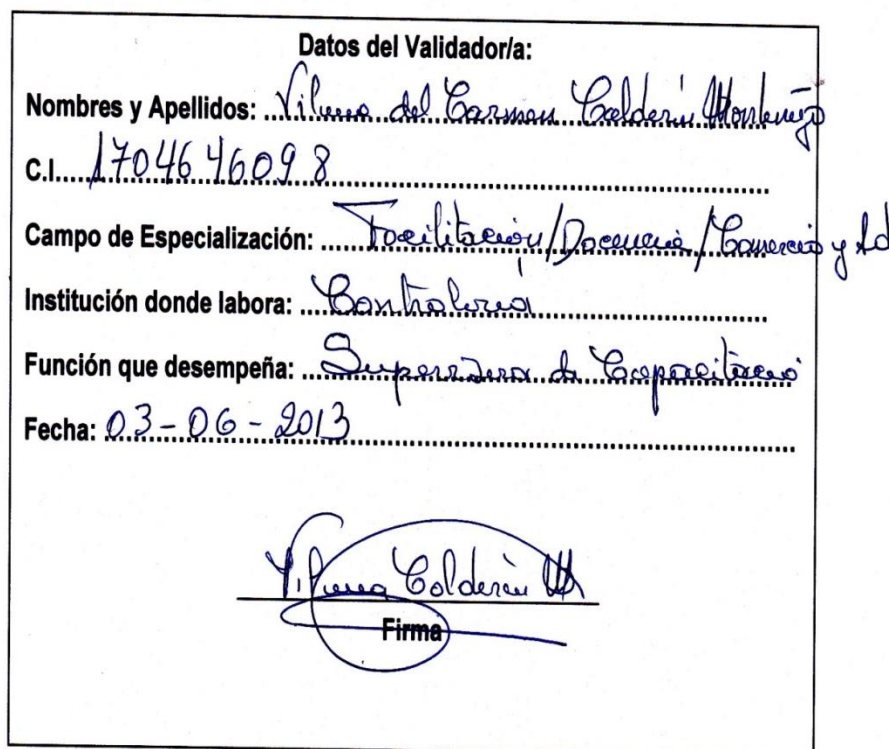 Datos del Validador/a:
Nombres y Apellidos: Vilma del Carmen Calderón Montenegro
C.I. 1704646098
Campo de Especialización: Facilitación/Docencia/Comercio y Ad
Institución donde labora: Contraloría
Función que desempeña: Supervisora de Capacitación
Fecha: 03-06-2013
Vilma Calderón M
Firma